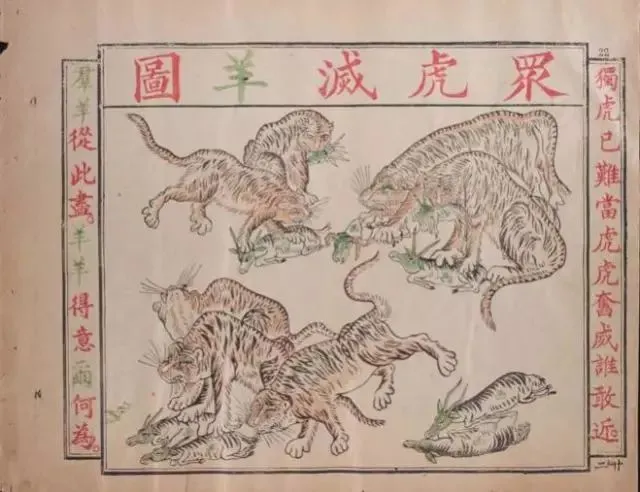 眾虎滅羊圖
獨虎已難當虎虎奮威誰敢近
羣羊從此盡。羊羊得意爾何為。